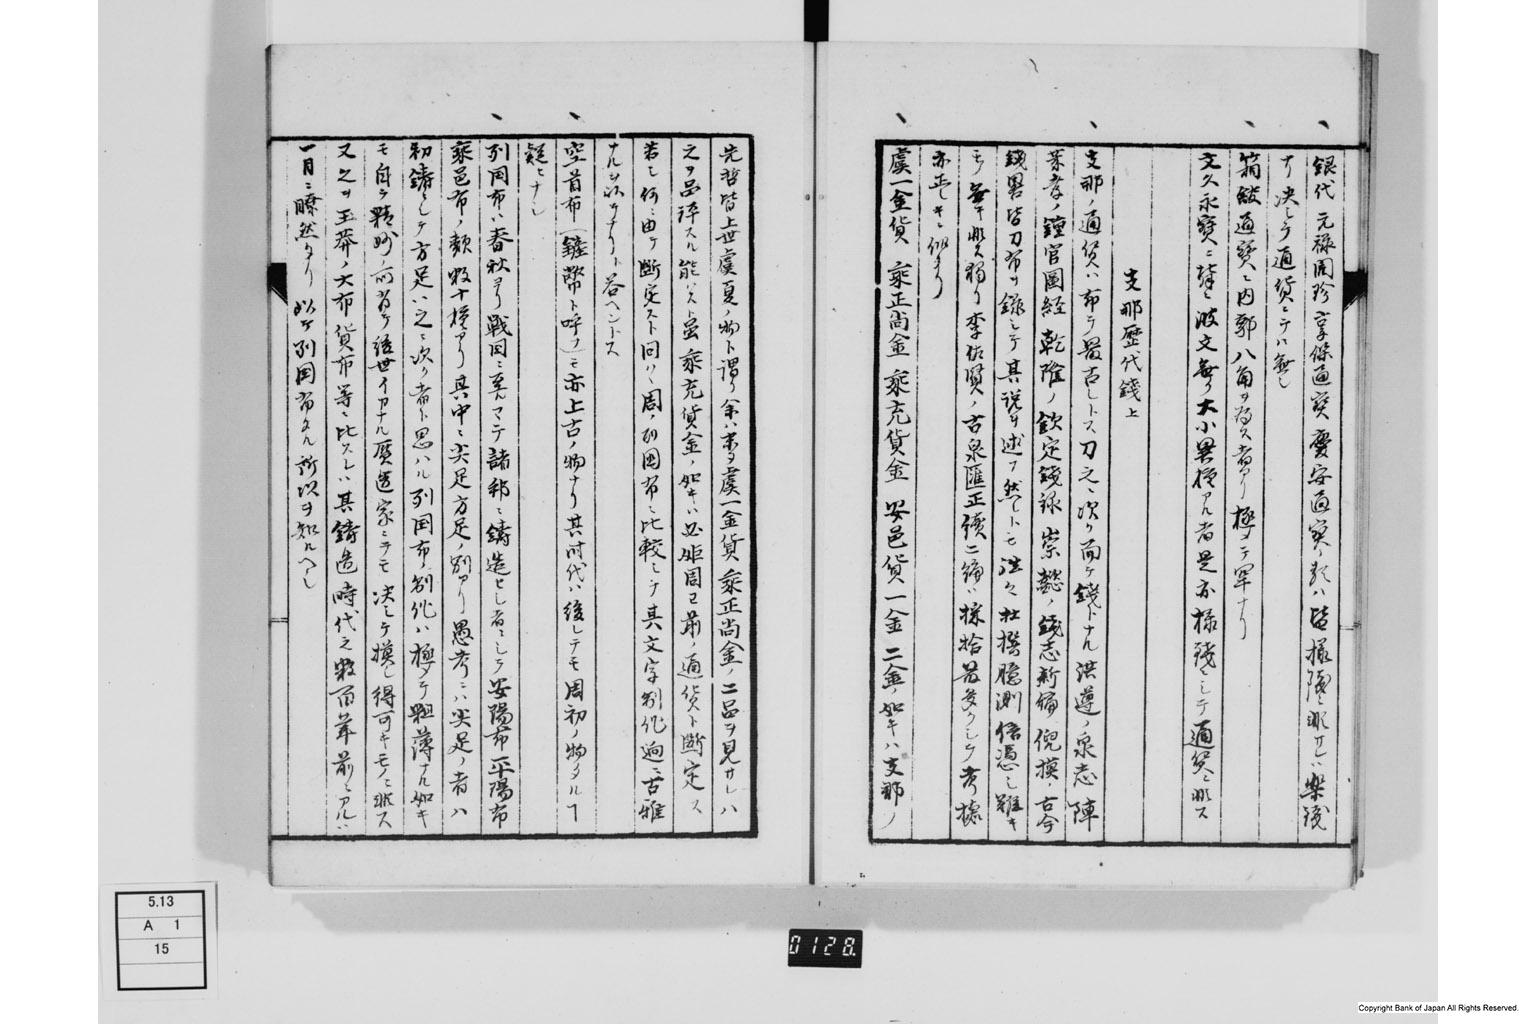 銀代 元禄開珍 享保通寳 慶安通寳ノ類ハ皆様錢ニ非サレハ樂錢
ナリ決シテ通貨ニテハ無シ
箱館通寳ニ内郭八角ヲ為ス者アリ極メテ罕ナリ
文久永寳ニ背ニ波文無ク大小異様アル者是亦様錢ニシテ通貨ニ非ス
支那歴代錢上
支那ノ通貨ハ布ヲ最古トス刀之ニ次ク而シテ錢ナル洪遵ノ泉志 陳
莱孝ノ鐘官圖経 乾隆ノ欽定錢録 崇懿ノ錢志新編 倪模ノ古今
錢畧皆刀布ヲ錄シテ其説ヲ述フ然レトモ往々杜撰臆測信憑シ難キ
モノ無キ非ス獨リ李佐賢ノ古泉匯正續二編ハ採拾最多クシテ考據
亦正シキニ似タリ
虞一金貨 乘正尚金 乘充貨金 安邑貨一金 二金ノ如キハ支那ノ
先哲皆上世虞夏ノ物ト謂フ余ハ未タ虞一金貨 乘正尚金ノ二品ヲ見サレハ
之ヲ品評スル能ハスト虽 乘充貨金ノ如キハ必姫周已前ノ通貨ト断定ス
若シ何ニ由テ断定スト問ハヽ周ノ列國布ニ比較シテ其文字制作迥ニ古雅
ナル以テナリト答ヘントス
空首布(鏟幣ト呼フ)モ亦上古ノ物ナリ其時代ハ後レテモ周初ノ物タルヿ
疑ヒナシ
列国布ハ春秋ヨリ戦国ニ至ルマテ諸邦ニ鋳造セシ者ニシテ安陽布 平陽布
乘邑布ノ類数十種アリ其中ニ尖足方足ノ別アリ愚考ニハ尖足ノ者ハ
初鋳ニシテ方足ハ之ニ次ク者ト思ハル列国布ノ制作ハ極メテ粗薄ナル如キ
モ自ラ精妙ノ所有テ後世イカナル贋造家ニテモ決シテ模シ得可キモノニ非ス
又之ヲ王莽ノ大布貨布等ニ比スレハ其鋳造時代之数百年前ニアルハ
一目ニ瞭然タリ 以テ列国布タル所以ヲ知ルヘシ
5.13
A 1
15
0128.
Copyright Bank of Japan All Rights Reserved.